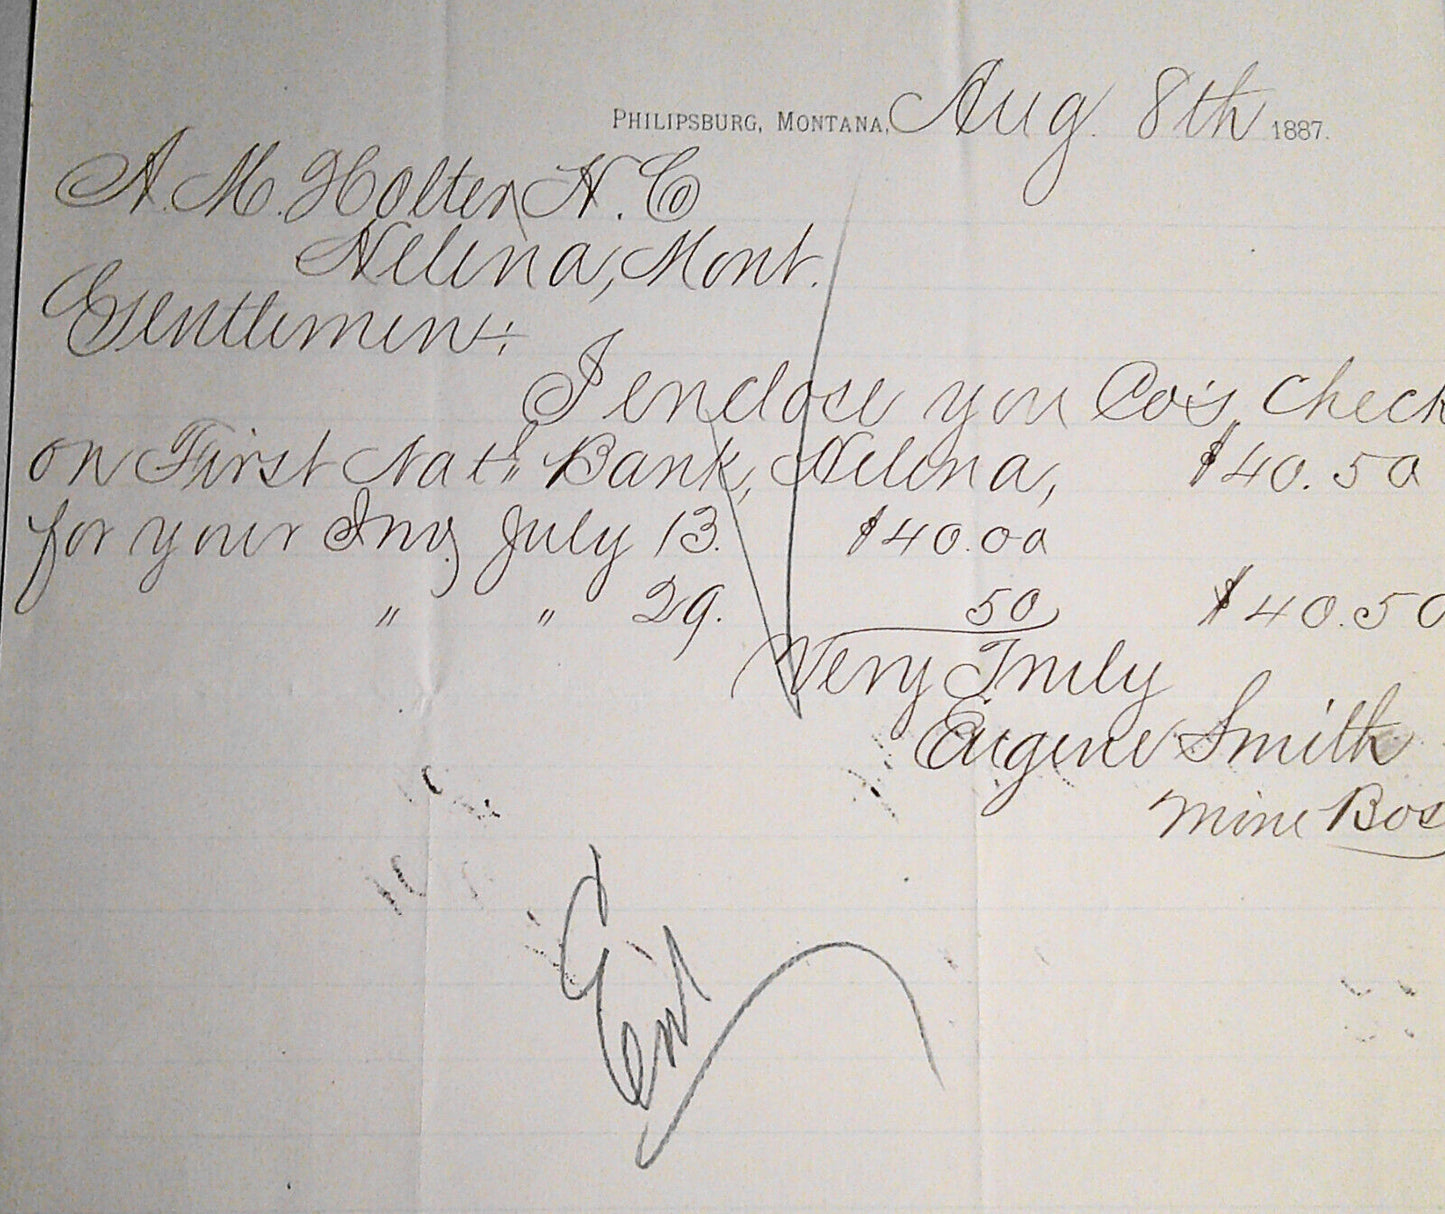 PHILIPSBURG, MONTANA, Aug. 8th 1887.
A. M. Holter H. Co
Helena, Mont.
Gentlemen:
I enclose you Co's Check
on First Nat'l Bank, Helena, $40.50
for your Inv. July 13. $40.00
" " 29. 50 $40.50
Very Truly
Eugene Smith
Mine Bos
Ent